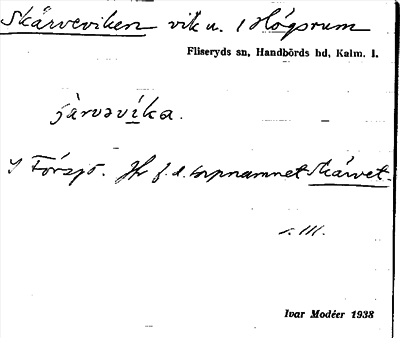 Skärveviken vik u. 1 Högsrum
Fliseryds sn, Handbörds hd, Kalm. l.
I Försjö. Jfr f.d. torpnamnet Skärvet.
s. III.
Ivar Modéer 1938